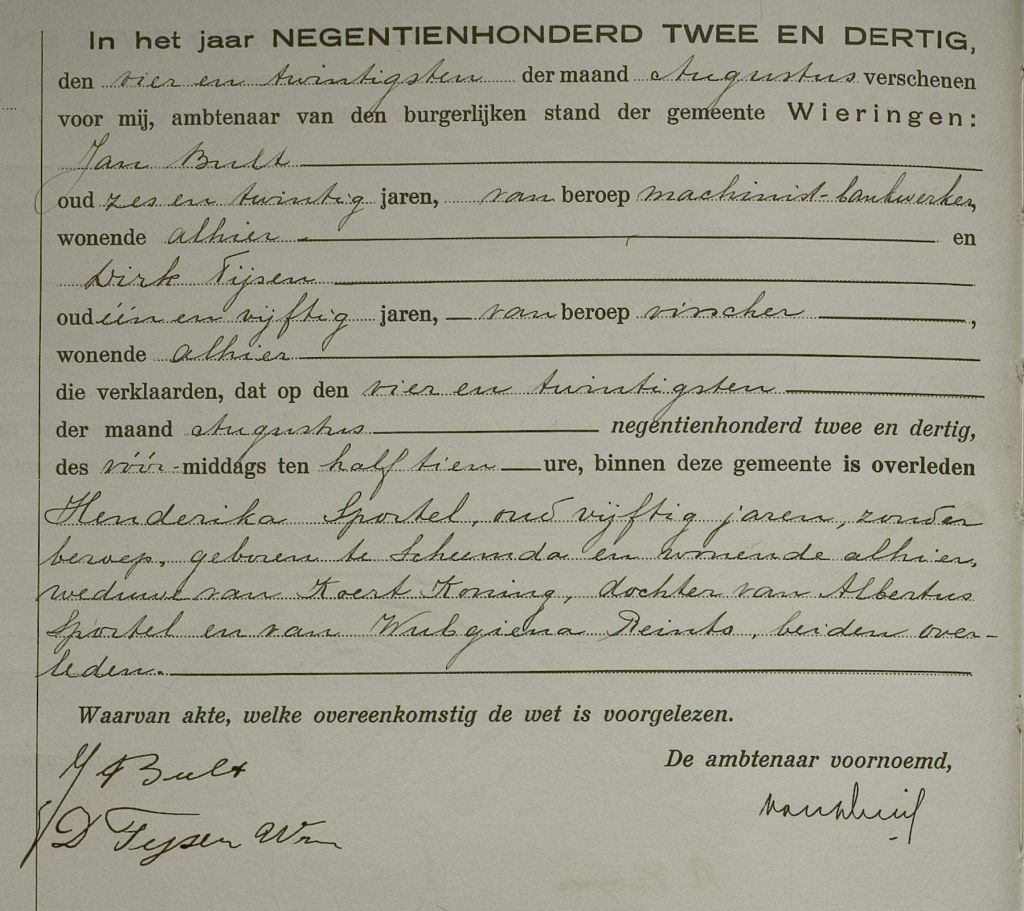 In het jaar NEGENTIENHONDERD TWEE EN DERTIG,
den vier en twintigsten der maand Augustus verschenen
voor mij, ambtenaar van den burgerlijken stand der gemeente Wieringen:
Jan Bult
oud zes en twintig jaren, van beroep machinist-bankwerker,
wonende alhier en
Dirk Tijsen
oud één en vijftig jaren, van beroep visscher,
wonende alhier
die verklaarden, dat op den vier en twintigsten
der maand Augustus negentienhonderd twee en dertig,
des vóór-middags ten half tien ure, binnen deze gemeente is overleden
Henderika Sportel, oud vijftig jaren, zonder
beroep, geboren te Scheemda en wonende alhier,
weduwe van Koert Koning, dochter van Albertus
Sportel en van Wubgiena Reints, beiden over-
leden.
Waarvan akte, welke overeenkomstig de wet is voorgelezen.
De ambtenaar voornoemd,
J Bult
D Tysen Wzn